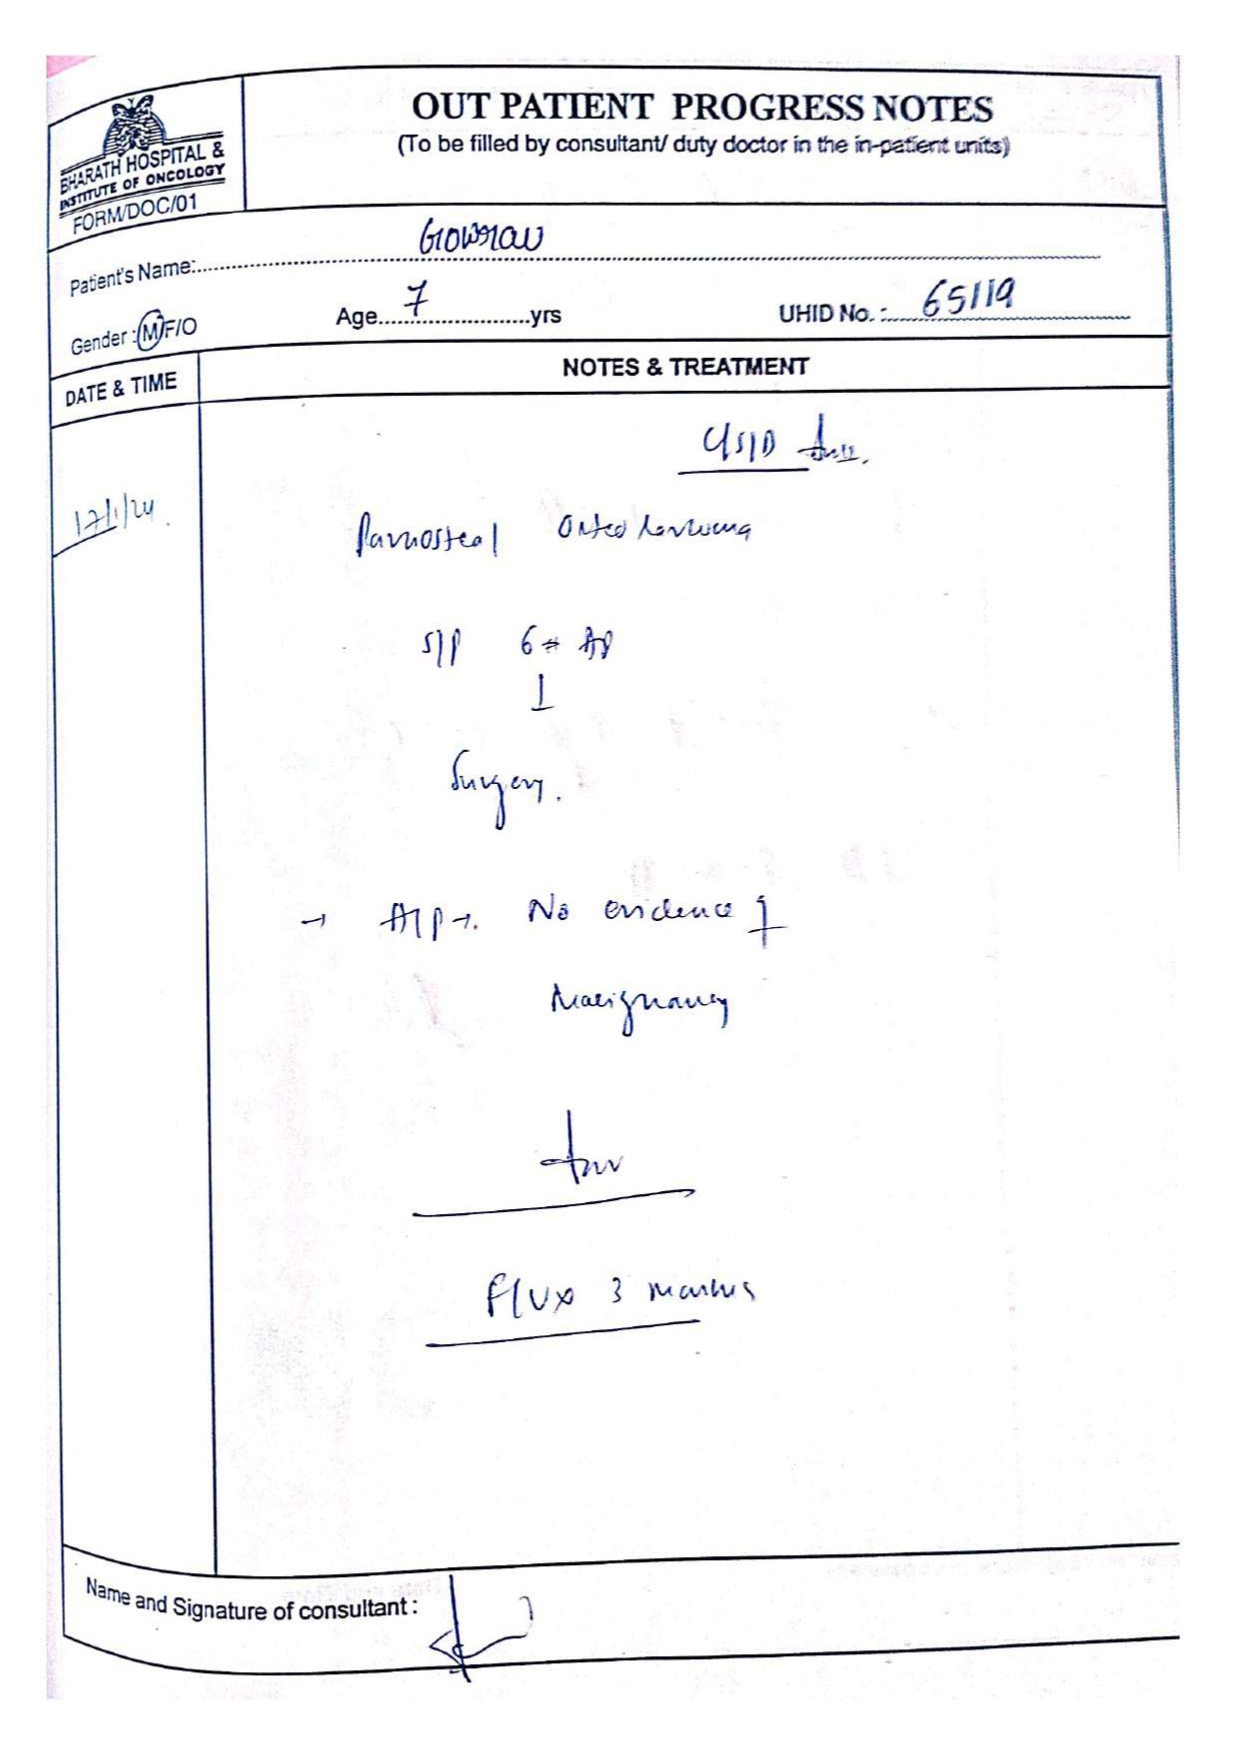 OUT PATIENT PROGRESS NOTES
(To be filled by consultant/ duty doctor in the in-patient units)
BHARATH HOSPITAL &
INSTITUTE OF ONCOLOGY
FORM/DOC/01
Patient's Name: Gowrav
Gender : M/F/O Age 7 yrs UHID No. : 65119
DATE & TIME NOTES & TREATMENT
C/S/D
17/1/24
Parosteal Osteosarcoma
S/P 6 AP
↓
Surgery.
→ No evidence of
Malignancy
3 months
Name and Signature of consultant :